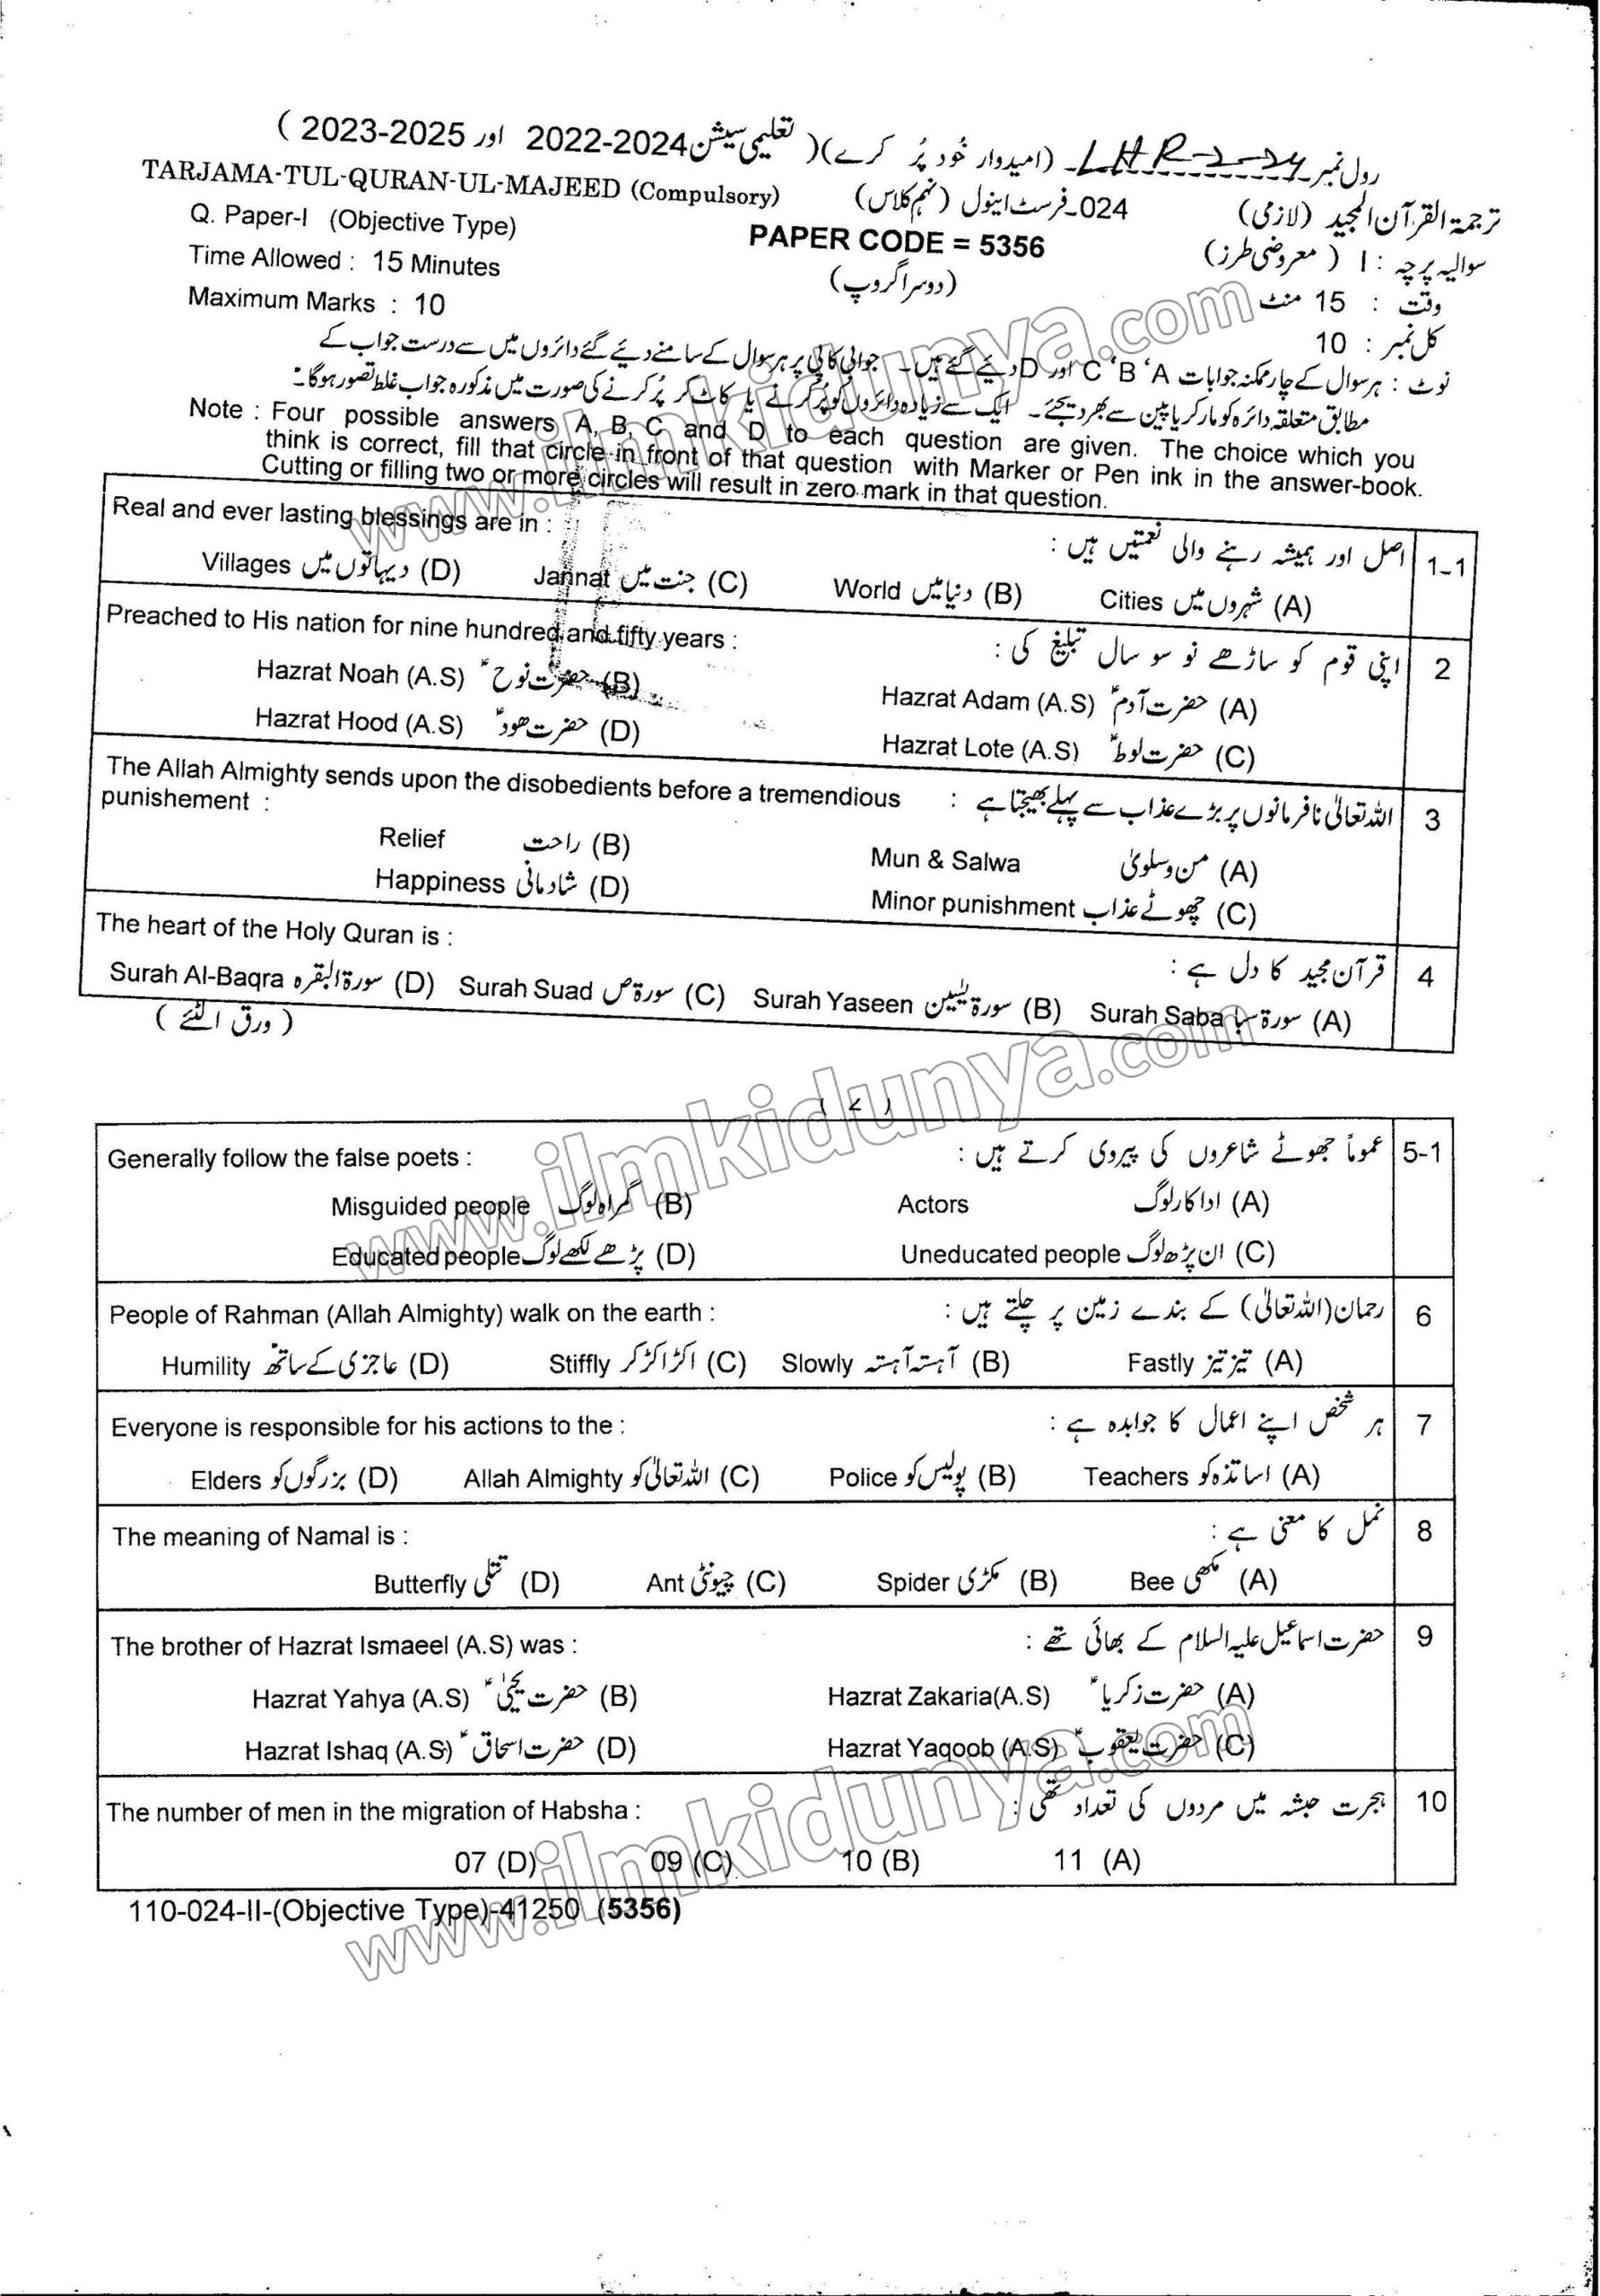 رول نمبر LHR-2-24 ۔(امیدوار خود پُر کرے)( تعلیمی سیشن 2024-2022 اور 2025-2023 )
TARJAMA-TUL-QURAN-UL-MAJEED (Compulsory)
024۔فرسٹ اینول (نہم کلاس)
ترجمۃ القرآن المجید (لازمی)
Q. Paper-I (Objective Type)
PAPER CODE = 5356
سوالیہ پرچہ : I ( معروضی طرز)
Time Allowed : 15 Minutes
(دوسرا گروپ)
وقت : 15 منٹ
Maximum Marks : 10
کل نمبر : 10
نوٹ : ہر سوال کے چار ممکنہ جوابات A، B، C اور D دیئے گئے ہیں۔ جوابی کاپی پر ہر سوال کے سامنے دیئے گئے دائروں میں سے درست جواب کے
مطابق متعلقہ دائرہ کو مارکر یا پین سے بھر دیجئے۔ ایک سے زیادہ دائروں کو پُر کرنے یا کاٹ کر پُر کرنے کی صورت میں مذکورہ جواب غلط تصور ہوگا۔
Note : Four possible answers A, B, C and D to each question are given. The choice which you
think is correct, fill that circle in front of that question with Marker or Pen ink in the answer-book.
Cutting or filling two or more circles will result in zero mark in that question.
Real and ever lasting blessings are in : اصل اور ہمیشہ رہنے والی نعمتیں ہیں : 1-1
Villages دیہاتوں میں (D) Jannat جنت میں (C) World دنیا میں (B) Cities شہروں میں (A)
Preached to His nation for nine hundred and fifty years : اپنی قوم کو ساڑھے نو سو سال تبلیغ کی : 2
Hazrat Noah (A.S) حضرت نوحؑ (B) Hazrat Adam (A.S) حضرت آدمؑ (A)
Hazrat Hood (A.S) حضرت ھودؑ (D) Hazrat Lote (A.S) حضرت لوطؑ (C)
The Allah Almighty sends upon the disobedients before a tremendious اللہ تعالیٰ نافرمانوں پر بڑے عذاب سے پہلے بھیجتا ہے : 3
punishement :
Relief راحت (B) Mun & Salwa من و سلویٰ (A)
Happiness شادمانی (D) Minor punishment چھوٹے عذاب (C)
The heart of the Holy Quran is : قرآن مجید کا دل ہے : 4
Surah Al-Baqra سورۃ البقرہ (D) Surah Suad سورۃ ص (C) Surah Yaseen سورۃ یٰسین (B) Surah Saba سورۃ سبا (A)
( ورق الٹئے )
( 2 )
Generally follow the false poets : عموماً جھوٹے شاعروں کی پیروی کرتے ہیں : 5-1
Misguided people گمراہ لوگ (B) Actors اداکار لوگ (A)
Educated people پڑھے لکھے لوگ (D) Uneducated people ان پڑھ لوگ (C)
People of Rahman (Allah Almighty) walk on the earth : رحمان(اللہ تعالیٰ) کے بندے زمین پر چلتے ہیں : 6
Humility عاجزی کے ساتھ (D) Stiffly اکڑ اکڑ کر (C) Slowly آہستہ آہستہ (B) Fastly تیز تیز (A)
Everyone is responsible for his actions to the : ہر شخص اپنے اعمال کا جوابدہ ہے : 7
Elders بزرگوں کو (D) Allah Almighty اللہ تعالیٰ کو (C) Police پولیس کو (B) Teachers اساتذہ کو (A)
The meaning of Namal is : نمل کا معنی ہے : 8
Butterfly تتلی (D) Ant چیونٹی (C) Spider مکڑی (B) Bee مکھی (A)
The brother of Hazrat Ismaeel (A.S) was : حضرت اسماعیل علیہ السلام کے بھائی تھے : 9
Hazrat Yahya (A.S) حضرت یحییٰؑ (B) Hazrat Zakaria(A.S) حضرت زکریاؑ (A)
Hazrat Ishaq (A.S) حضرت اسحاقؑ (D) Hazrat Yaqoob (A.S) حضرت یعقوبؑ (C)
The number of men in the migration of Habsha : ہجرت حبشہ میں مردوں کی تعداد تھی : 10
07 (D) 09 (C) 10 (B) 11 (A)
110-024-II-(Objective Type)-41250 (5356)
www.ilmkidunya.com
www.ilmkidunya.com
www.ilmkidunya.com